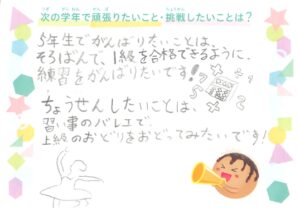 次の学年で頑張りたいこと・挑戦したいことは？
5年生でがんばりたいことは、
そろばんで、1級を合格できるように、
練習をがんばりたいです!
ちょうせんしたいことは、
習い事のバレエで、
上級のおどりをおどってみたいです!